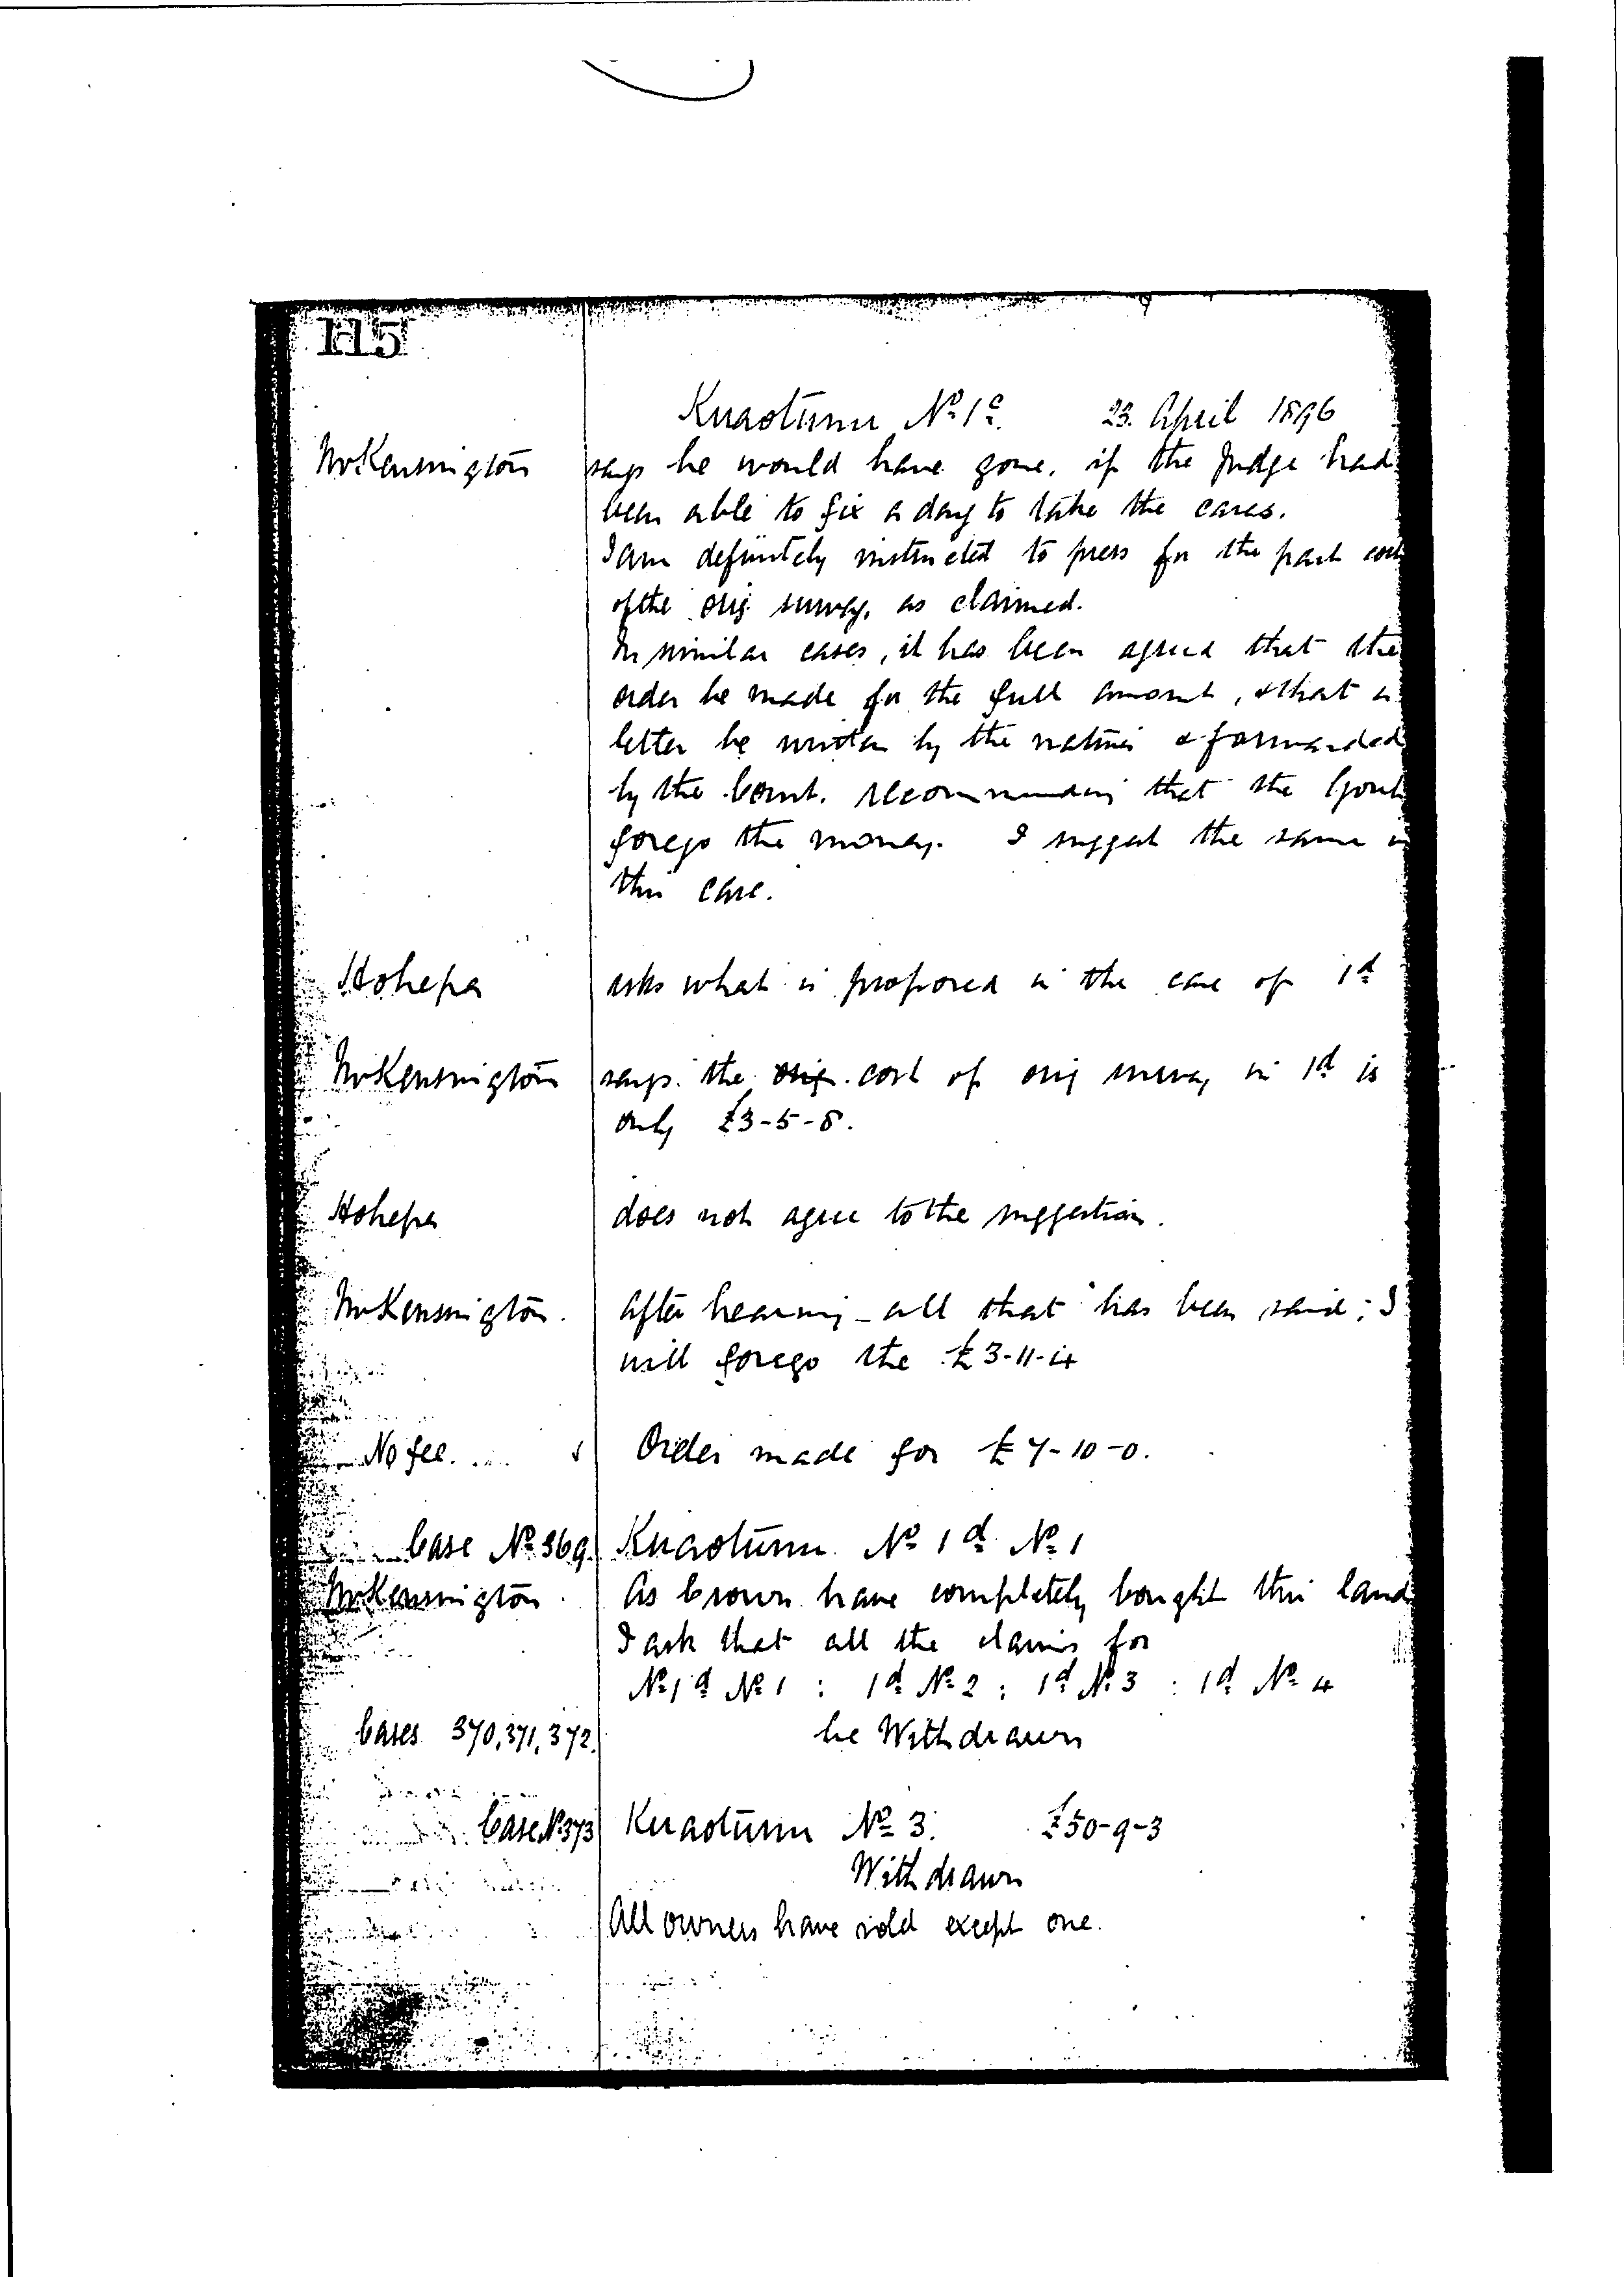 115
Kuaotunu No 1c. 23. April 1896
Mr Kensington says he would have gone, if the Judge had
been able to fix a day to take the cases.
I am definitely instructed to press for the part cost
of the orig survey, as claimed.
In similar cases, it has been agreed that the
order be made for the full amount, & that a
letter be written by the natives & forwarded
by the Court. recommending that the Govt
forego the money. I suggest the same in
this case.
Hohepa asks what is proposed in the case of 1d
Mr Kensington says. the orig. cost of orig survey in 1d is
only £3-5-8.
Hohepa does not agree to the suggestion.
Mr Kensington. After hearing all that has been said; I
will forego the £3-11-4
No fee. Order made for £7-10-0.
Case No 369. Kuaotunu No 1d No 1
Mr Kensington. As Crown have completely bought this land
I ask that all the claims for
No 1d No 1 : 1d No 2 : 1d No 3 : 1d No 4
Cases 370, 371, 372. be Withdrawn
Case No 373 Kuaotunu No 3. £50-9-3
Withdrawn
All owners have sold except one.